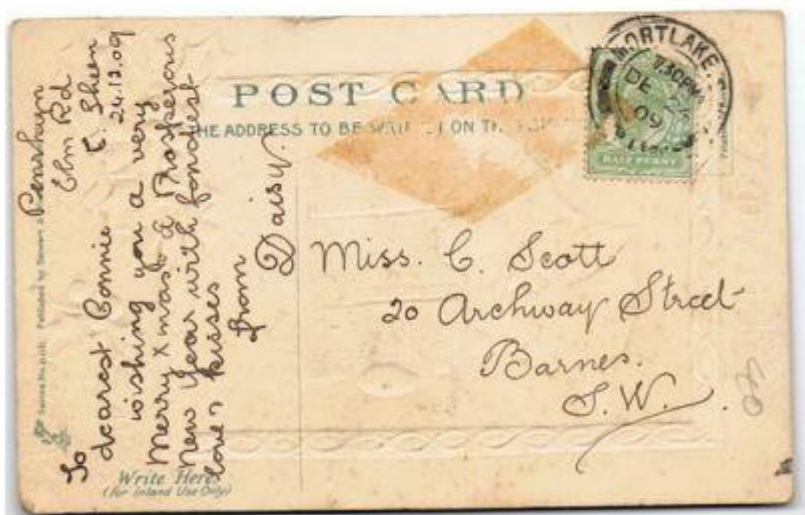 POST CARD
THE ADDRESS TO BE WRITTEN ON THIS SIDE
MORTLAKE
7.30PM
DE 24
09
HALF PENNY
Elm Rd
E. Sheen
24.12.09
To dearest Connie
wishing you a very
Merry Xmas & Prosperous
New Year with fondest
love & kisses
from
Daisy.
Miss. C. Scott
20 Archway Street
Barnes.
S.W.
Write Here
(for Inland Use Only)